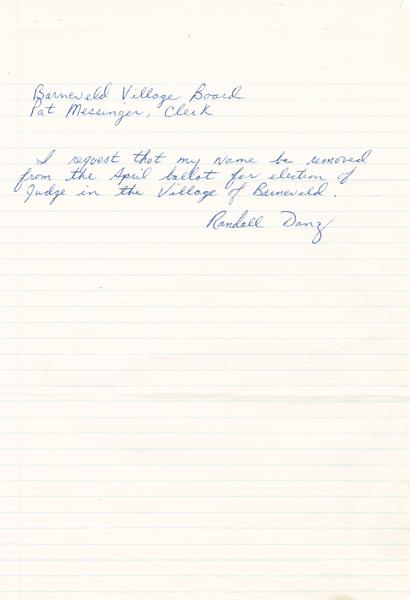 Barneveld Village Board
Pat Messinger, Clerk
I request that my name be removed
from the April ballot for election of
Judge in the Village of Barneveld.
Randall Danz